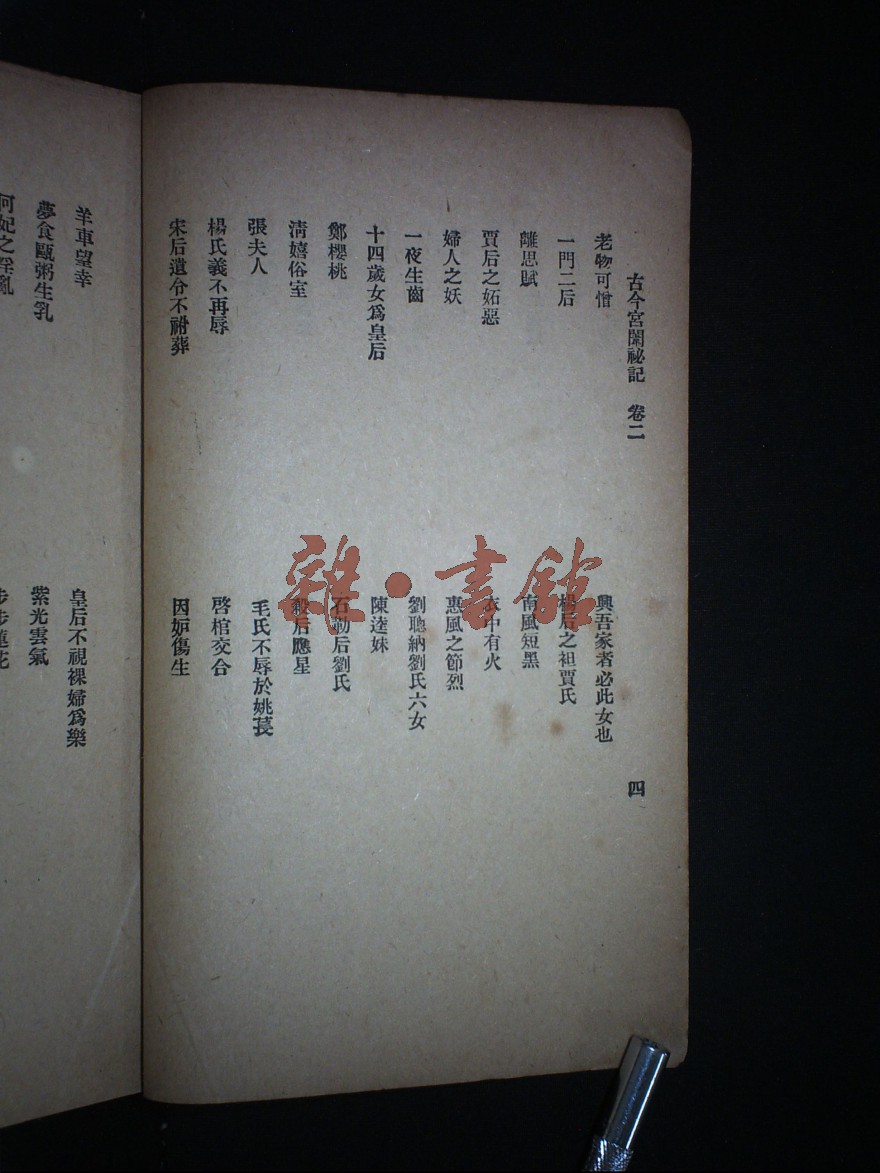 古今宮闈祕記 卷二 四
老物可憎 興吾家者必此女也
一門二后 楊后之袒賈氏
離思賦 南風短黑
賈后之妬惡 衣中有火
婦人之妖 惠風之節烈
一夜生齒 劉聰納劉氏六女
十四歲女爲皇后 陳逵妹
鄭櫻桃 石勒后劉氏
淸嬉俗室 殺后應星
張夫人 毛氏不辱於姚萇
楊氏義不再辱 啓棺交合
宋后遺令不祔葬 因妒傷生
羊車望幸 皇后不視裸婦爲樂
夢食甌粥生乳 紫光雲氣
何妃之淫亂 步步蓮花
雜·書館